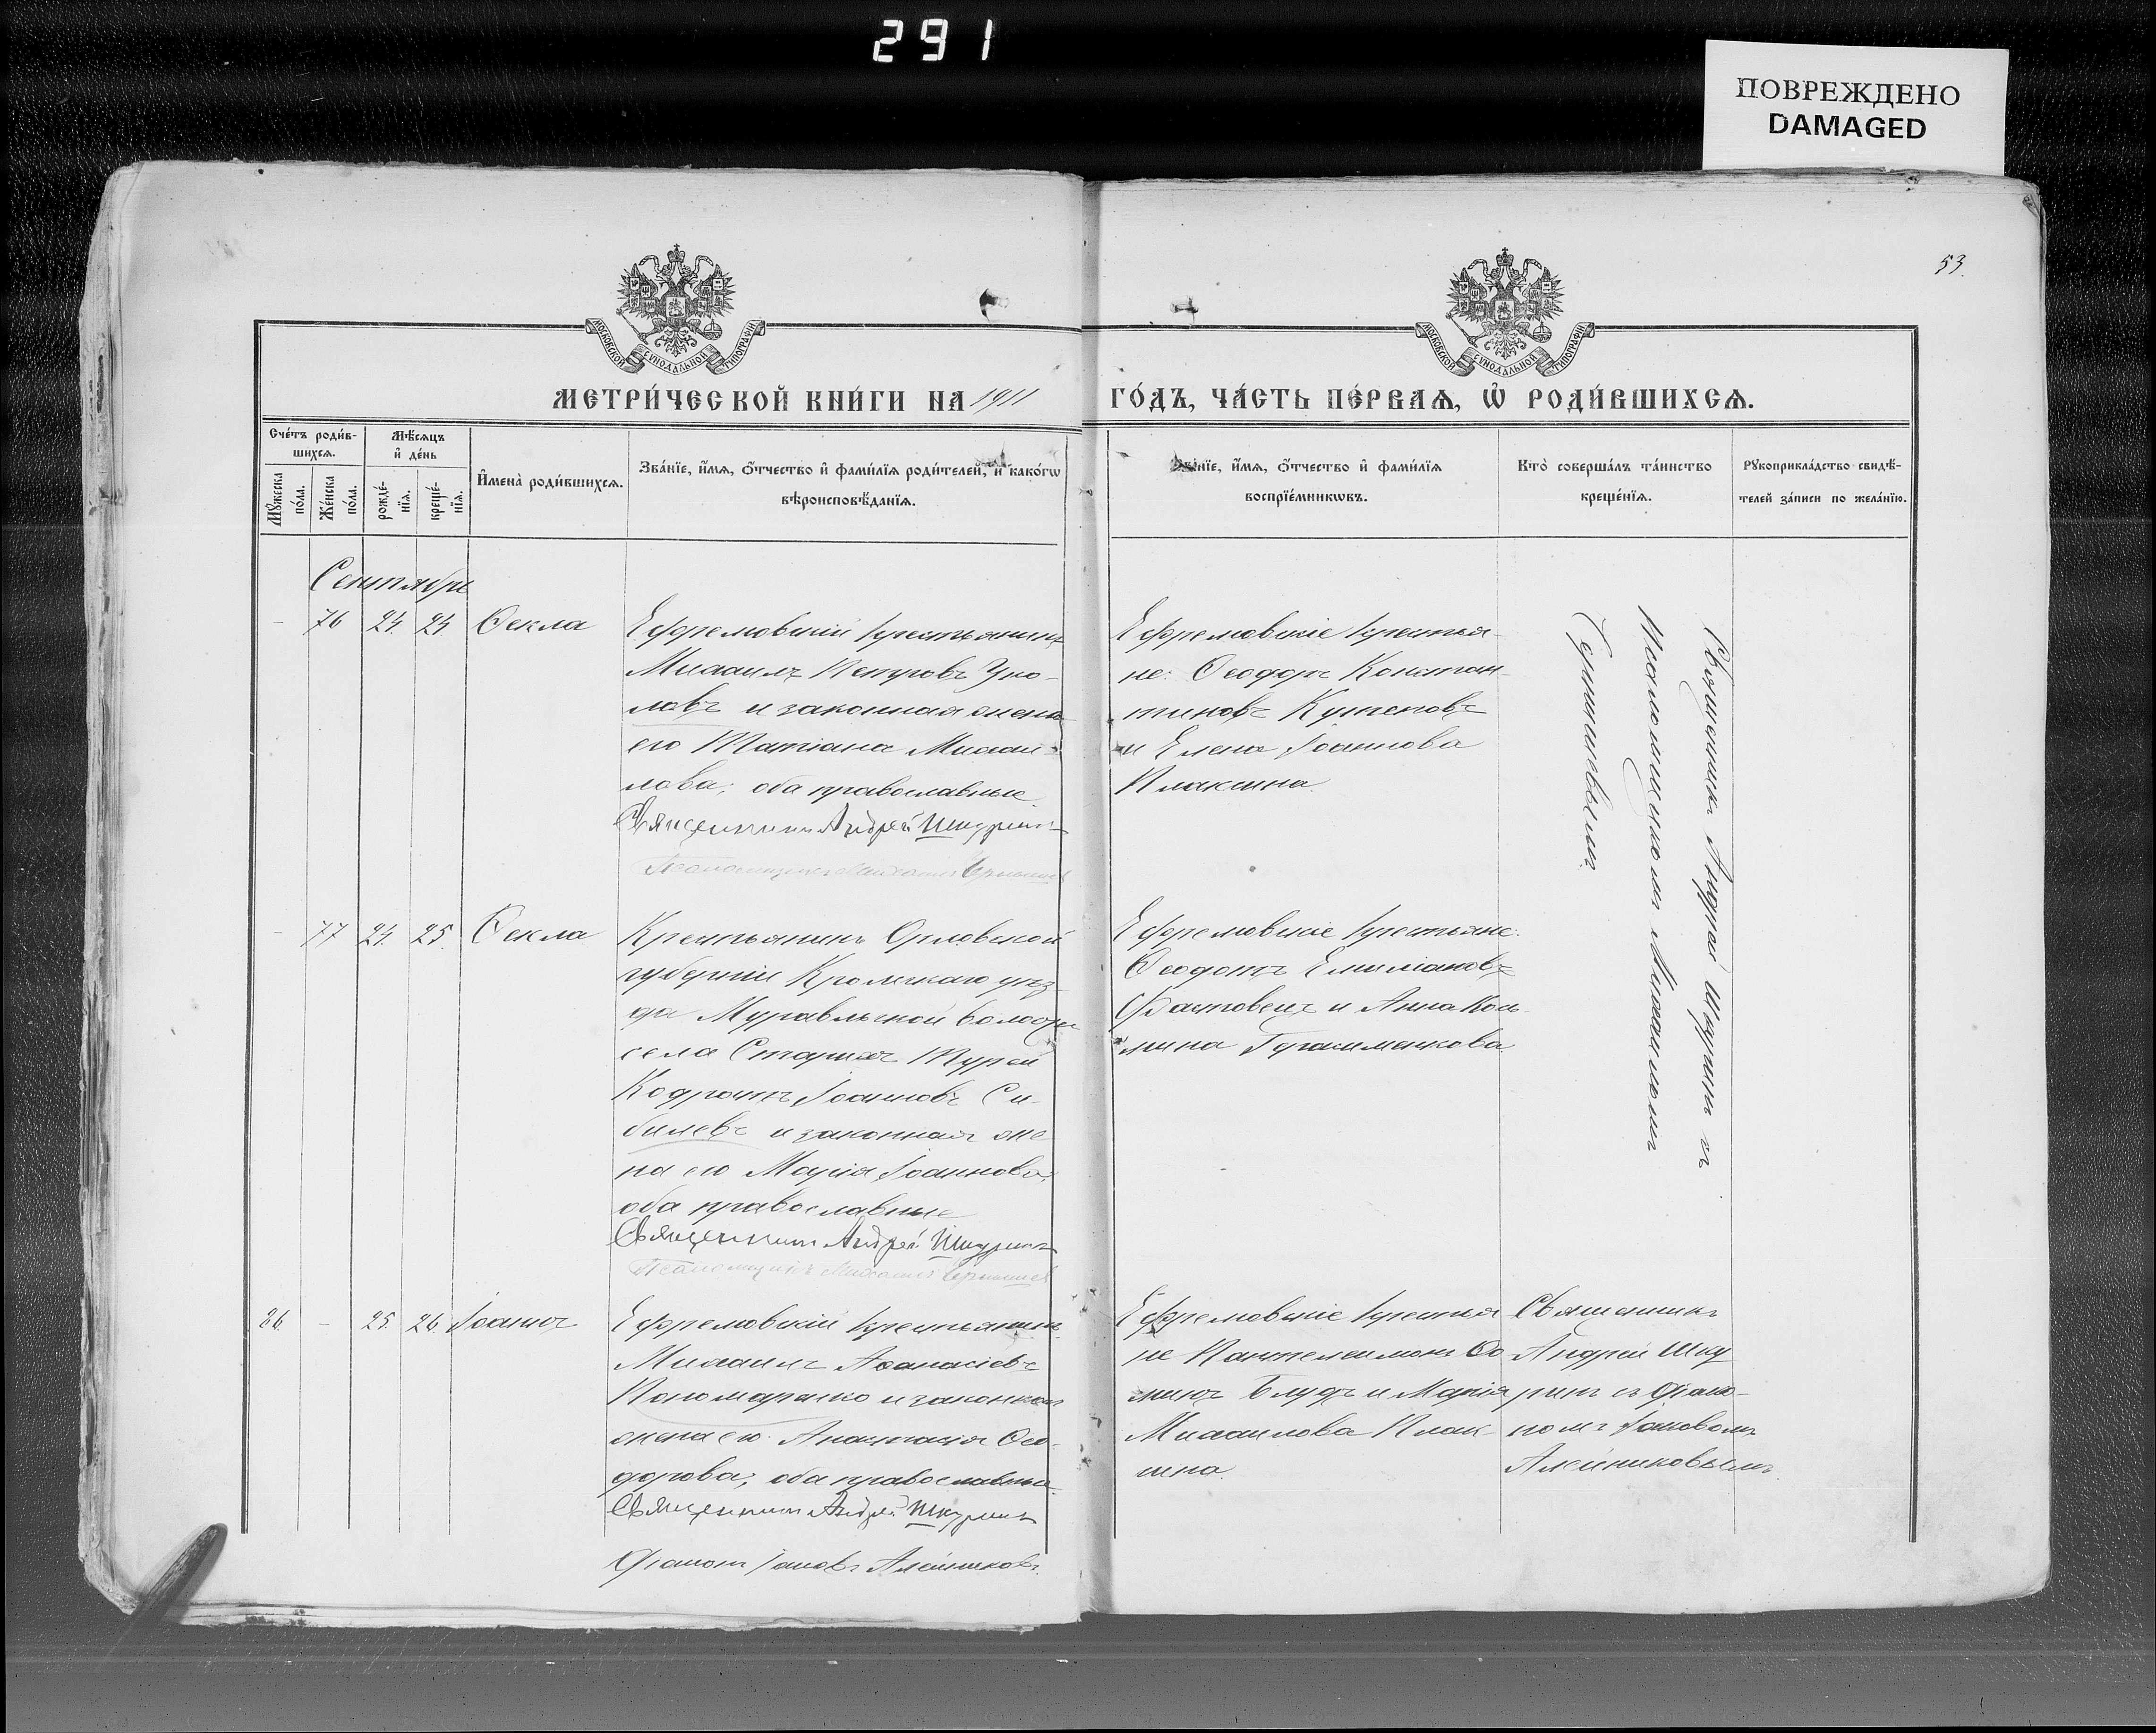 291
ПОВРЕЖДЕНО
DAMAGED
53.
МОСКОВСКОЙ СУНОДАЛЬНОЙ ТИПОГРАФІИ
МОСКОВСКОЙ СУНОДАЛЬНОЙ ТИПОГРАФІИ
МЕТРИ́ЧЕСКОЙ КНИ́ГИ НА 1911
ГО́ДЪ, ЧА́СТЬ ПЕ́РВАѦ, Ѡ҆ РОДИ́ВШИХСѦ.
Сче́тъ роди́в-
шихсѧ.
Мѣ́сѧцъ
и҆ де́нь
Мꙋ́жеска
по́ла.
Же́нска
по́ла.
рожде́-
нїѧ.
креще́-
нїѧ.
И҆мена̀ роди́вшихсѧ.
Зва́нїе, и҆́мѧ, ѻ҆́тчество и҆ фами́лїѧ роди́телей, и҆ како́гѡ
вѣроисповѣ́данїѧ.
Зва́нїе, и҆́мѧ, ѻ҆́тчество и҆ фами́лїѧ
воспрїе́мникѡвъ.
Кто̀ соверша́лъ та́инство
креще́нїѧ.
Рꙋкоприкла́дство свидѣ́-
телей за́писи по жела́нїю.
Сентябрь
- 76 24. 24. Ѳекла
Ефремовскій крестьянинъ
Михаилъ Петровъ Уко-
ловъ и законная жена
его Татіана Михаи-
лова; оба православные
Священникъ Андрей Шкуринъ
Псаломщикъ Михаилъ
Ефремовскіе крестья-
не: Ѳеодоръ Констан-
тиновъ
и Елена Іоаннова
Плаксина.
Священникъ Андрей Шкуринъ съ
Псаломщикомъ Михаиломъ
- 77 24. 25. Ѳекла
Крестьянинъ Орловской
губерніи Кромскаго уѣз-
да Муравльской волости
села Старыхъ Турей
Кодратъ Іоанновъ Си-
билевъ и законная же-
на его Марія Іоаннова;
оба православные
Священникъ Андрей Шкуринъ
Псаломщикъ Михаилъ
Ефремовскіе крестьяне:
Ѳеодотъ Емиліановъ
и Анна Кось-
мина Герасименкова
86. - 25. 26. Іоаннъ
Ефремовскій крестьянинъ
Михаилъ Аѳанасіевъ
Пономаренко и законная
жена его Анастасія Ѳео-
дорова; оба православные.
Священникъ Андрей Шкуринъ
Діаконъ Іаковъ Алейниковъ.
Ефремовскіе крестья
не Пантелеимонъ Ѳо
минъ Блудъ и Марія
Михаилова Плак
сина.
Священникъ
Андрей Шку
ринъ съ діако-
номъ Іаковомъ
Алейниковымъ.